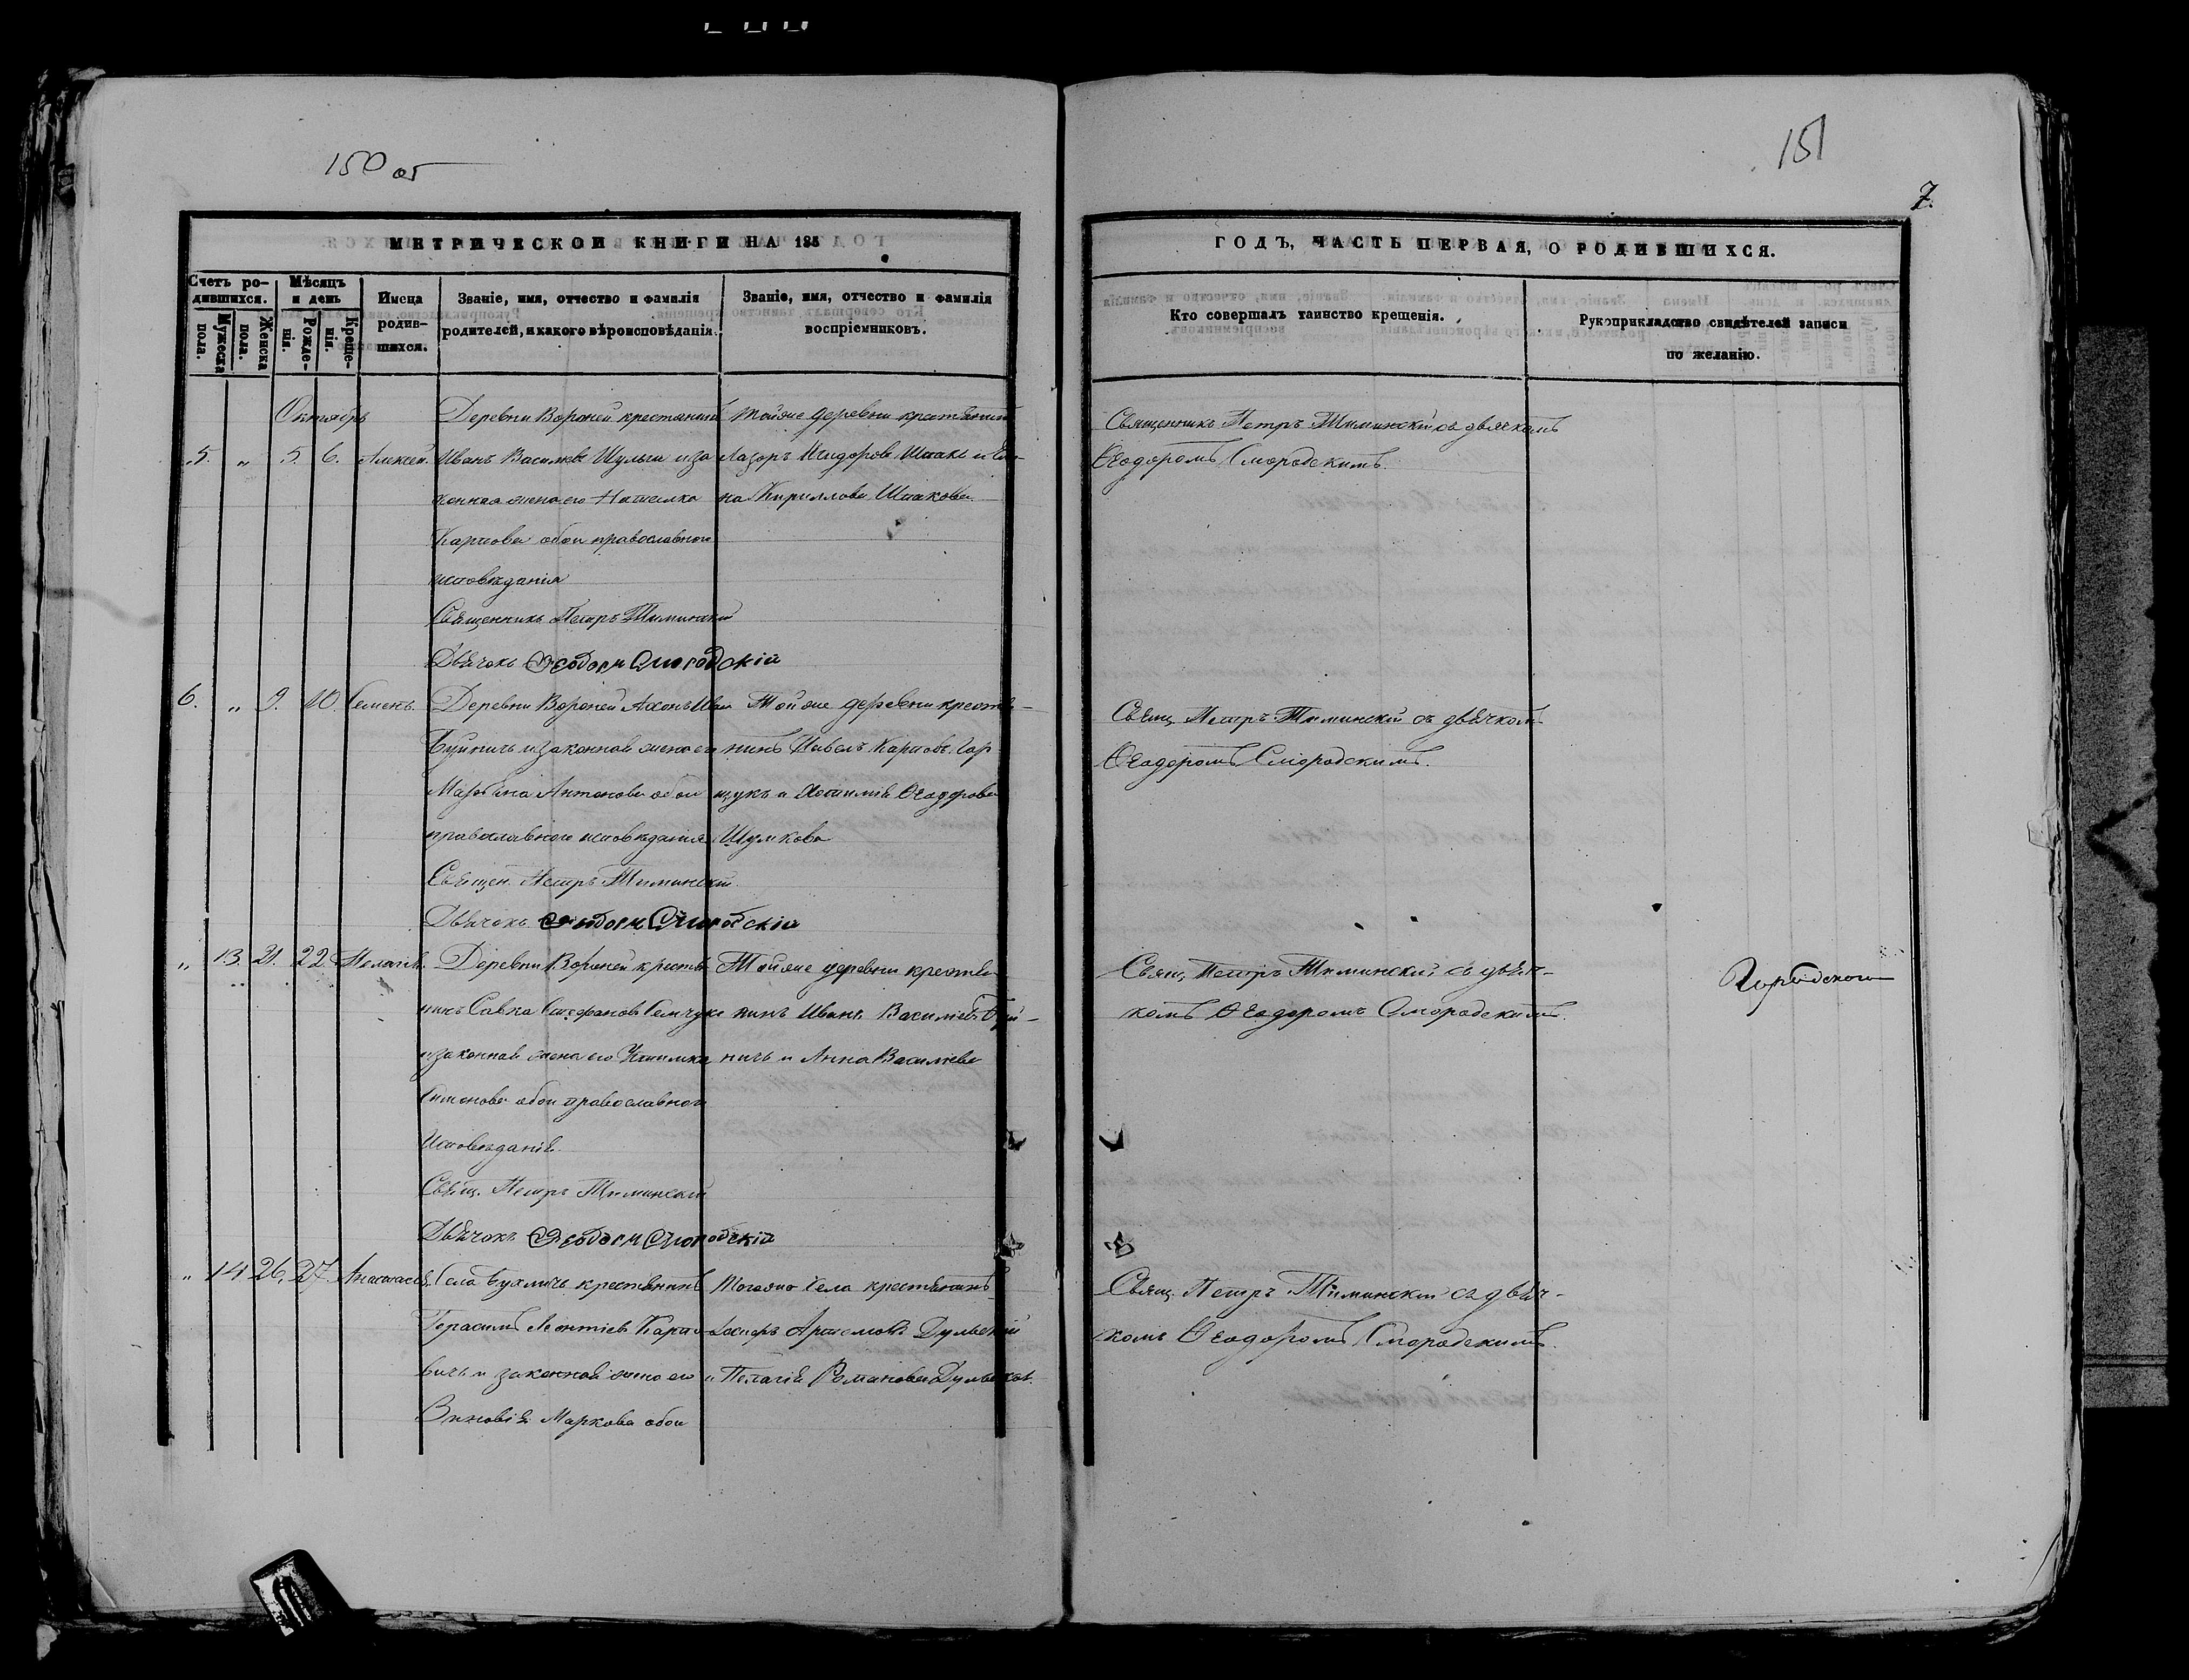 150 об
151
7.
МЕТРИЧЕСКОЙ КНИГИ НА 185
ГОДЪ, ЧАСТЬ ПЕРВАЯ, О РОДИВШИХСЯ.
Счетъ ро-
дившихся.
Мужеска
пола.
Женска
пола.
Мѣсяцъ
и день
Рожде-
нія.
Креще-
нія.
Имена
родив-
шихся.
Званіе, имя, отчество и фамилія
родителей, и какого вѣроисповѣданія.
Званіе, имя, отчество и фамилія
воспріемниковъ.
Кто совершалъ таинство крещенія.
Рукоприкладство свидѣтелей записи
по желанію.
Октябрь
5. " 5. 6. Алексей.
Деревни Вороней крестянинъ
Иванъ Васильевъ Шульги и за
конная жена его Наталка
Карпова обои православнаго
исповѣданія
Священникъ Петръ Тиминскій
Дьячокъ Ѳеодоръ Смородскій
Тойже деревни крестянинъ
Лазоръ Исидоровъ Шпакъ и
на Кириллова Шпакова
Священникъ Петръ Тиминскій съ дьячкомъ
Ѳеодоромъ Смородскимъ.
6. " 9. 10. Семенъ.
Деревни Вороней
и законная жена его
Антонова обои
православнаго исповѣданія
Священ. Петръ Тиминскій
Дьячокъ Ѳеодоръ Смородскій
Той же деревни крестя-
нинъ Павелъ Карповъ Гор
щукъ и Ѳеодорова
Шумкова
Свящ. Петръ Тиминскій съ дьячкомъ
Ѳеодоромъ Смородскимъ.
" 13. 21. 22. Пелагія.
Деревни Вороней крестя-
нинъ Савка Стефановъ Семчукъ
и законная жена его
Симонова обои православнаго
Исповѣданія.
Свящ. Петръ Тиминскій
Дьячокъ Ѳеодоръ Смородскій
Тойже деревни крестья-
нинъ Иванъ Васильевъ Буй-
ничъ и Анна Васильева
Свящ. Петръ Тиминскій съ дьяч-
комъ Ѳеодоромъ Смородскимъ.
" 14 26. 27. Анастасія.
Села Бухличъ крестянинъ
Герасимъ Леонтіевъ Карпо-
вичъ и законная жена его
Зиновія Маркова обои
Тогоже Села крестянинъ
Артемовъ Дульскій
и Пелагія Романова Дульская.
Свящ. Петръ Тиминскій съ дьяч-
комъ Ѳеодоромъ Смородскимъ.